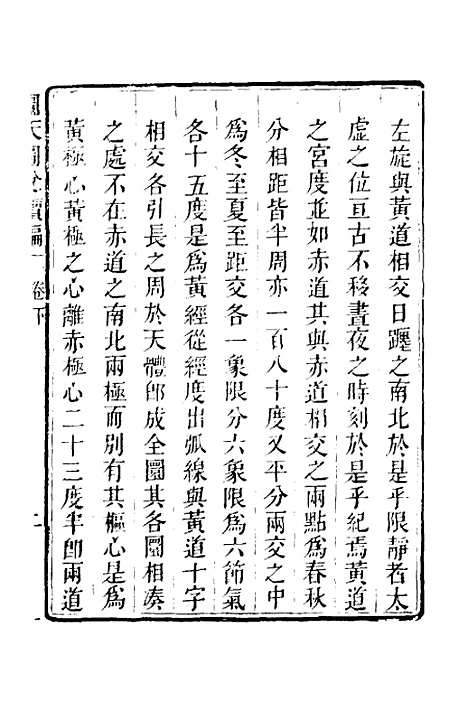 左旋與黃道相交日躔之南北於是乎限靜者太
虛之位亘古不移晝夜之時刻於是乎紀焉黃道
之宮度並如赤道其與赤道相交之兩點爲春秋
分相距皆半周亦一百八十度又平分兩交之中
爲冬至夏至距交各一象限分六象限爲六節氣
各十五度是爲黃經從經度出弧線與黃道十字
相交各引長之周於天體卽成全圜其各圜相湊
之處不在赤道之南北兩極而別有其樞心是爲
黃極心黃極之心離赤極心二十三度半卽兩道
卷下
二